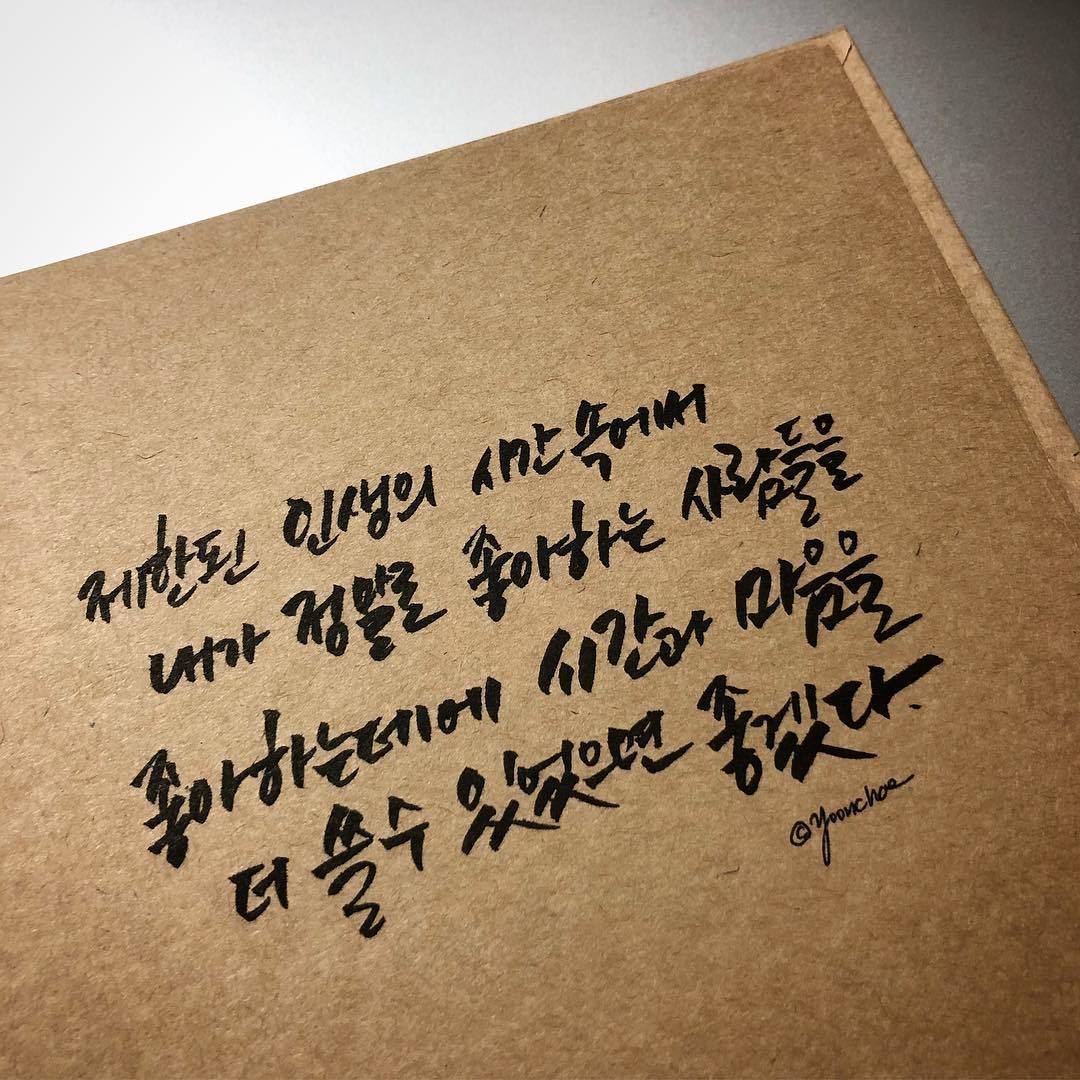 제한된 인생의 시간 속에서
내가 정말로 좋아하는 사람들을
좋아하는데에 시간과 마음을
더 쓸 수 있었으면 좋겠다.
©yoonchae